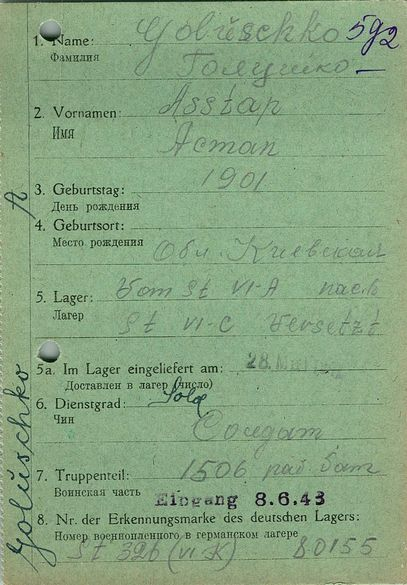 1. Name: Goluschko 592
Фамилия Голушко
2. Vornamen: Asstap
Имя Астап
3. Geburtstag: 1901
День рождения
4. Geburtsort:
Место рождения Обл. Киевская
5. Lager: Vom St VI-A nach
Лагер St VI-C Versetzt
5a. Im Lager eingeliefert am: 28.
Доставлен в лагер (число)
6. Dienstgrad: Sold
Чин Солдат
7. Truppenteil: 1506 раб бат
Воинская часть Eingang 8.6.43
8. Nr. der Erkennungsmarke des deutschen Lagers:
Номер военнопленного в германском лагере
St 326 (VI-K) 80155
Goluschko A